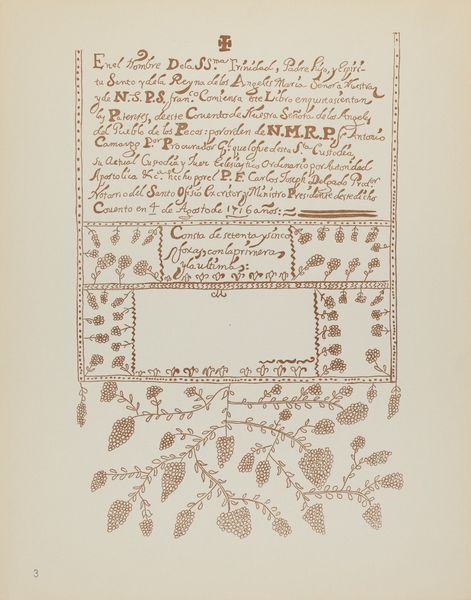 En el Nombre De la SSma Trinidad, Padre, Hijo, y Espiri-
tu Santo y de la Reyna de los Angeles Maria Señora Nuestra
y de N.S.P.S. Franco Comiensa este Libro en qu se asientan
las Patentes, de este Convento de Nuestra Señora de los Angels
del Pueblo de los Pecos: por orden de N.M.R.P. Fr Antonio
Camargo Por Procurador Gl que fue de esta Sta Custodia,
su Actual Custodio y Juez Eclesiastico Ordinario por Autoridad
Apostolica &c hecho por el P. F. Carlos Joseph Delgado Pror
Notario del Santo Ofisio Escritor y Ministro Presidente de este dicho
Convento en 4 de Agosto de 1716 años:
Consta de setenta y sinco
foxas, con la primera,
y la ultima:
3